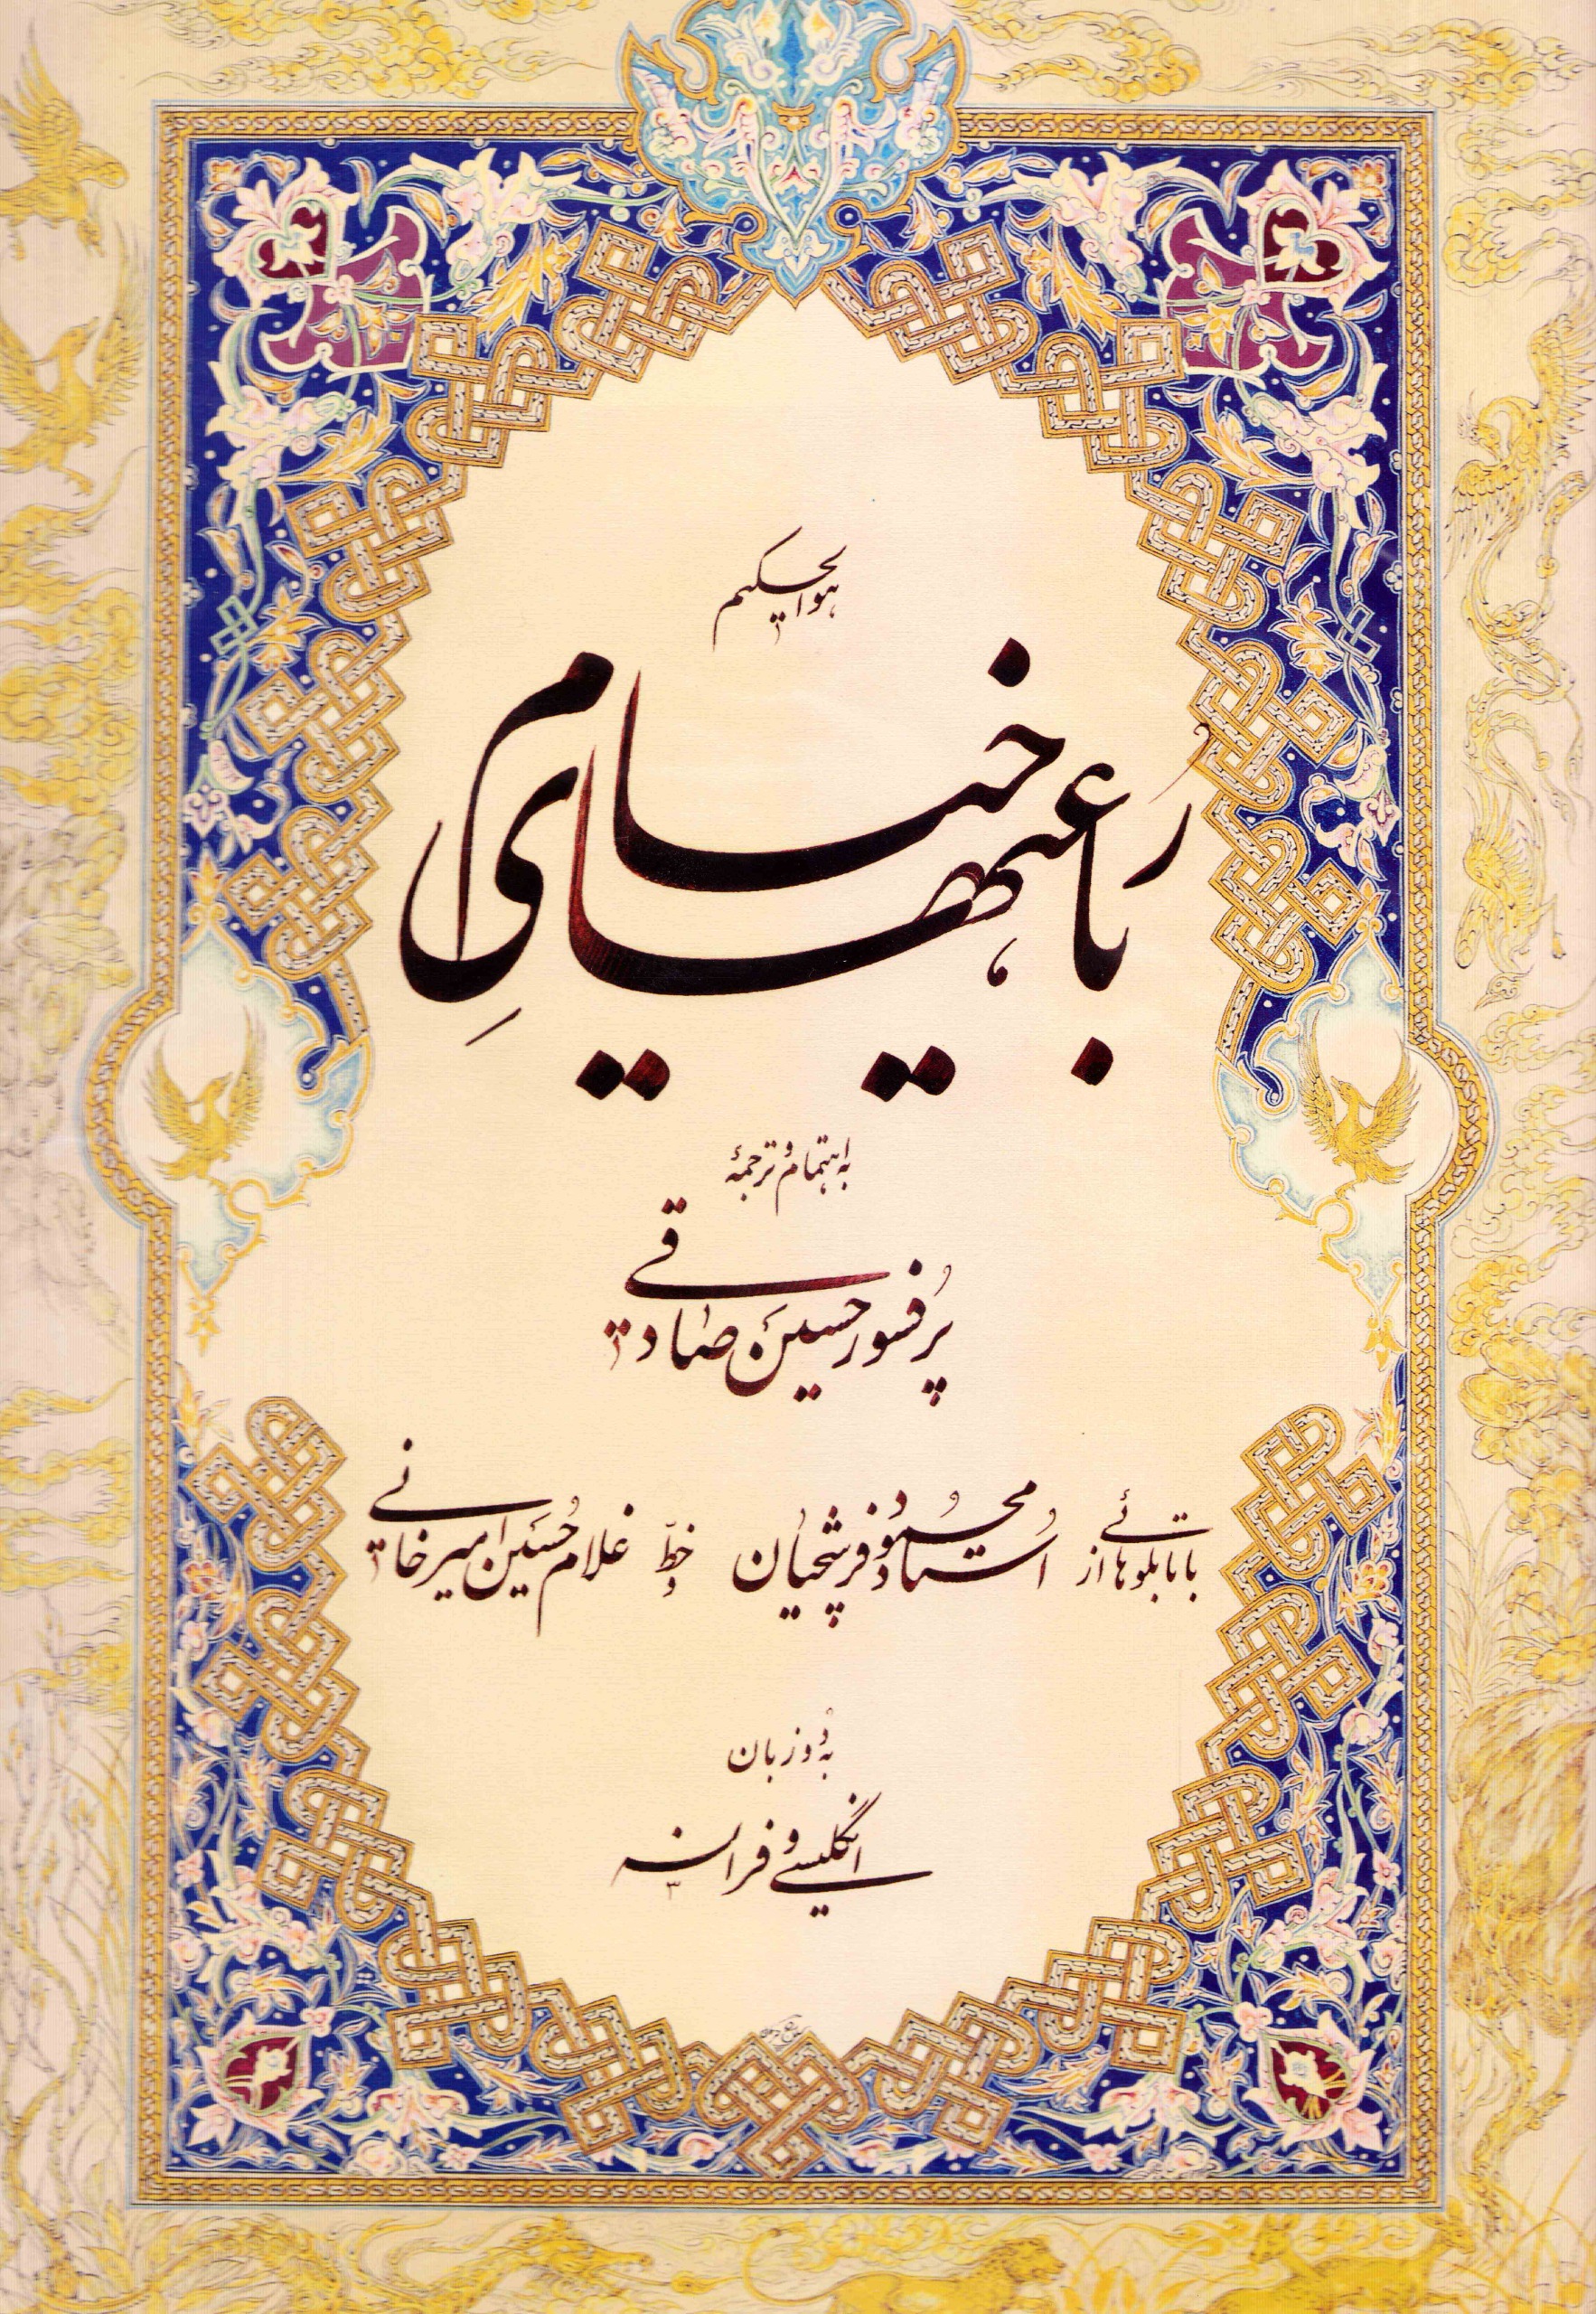 هوالحکیم
رباعیهای خیام
به اهتمام و ترجمهٔ
پرفسور حسین صادقی
با تابلوهائی از استاد محمود فرشچیان و خطّ غلامحسین امیرخانی
به دو زبان
انگلیسی و فرانسه